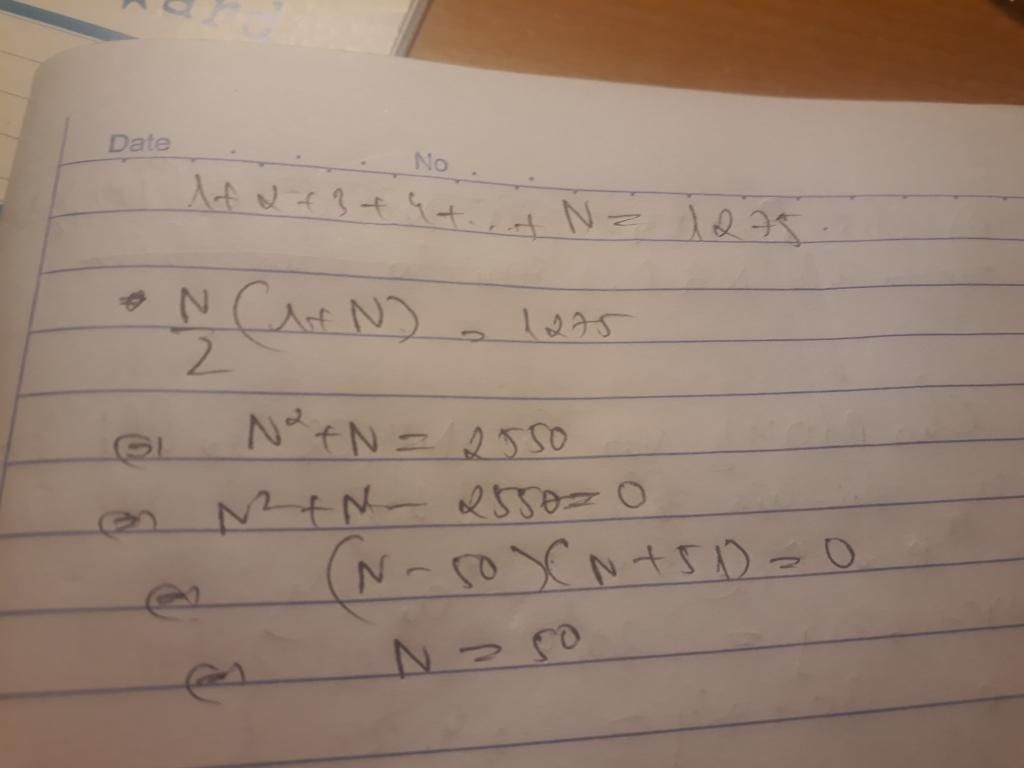 ard
Date No
1+2+3+4+...+N = 1275.
N/2 (1+N) = 1275
⇔ N²+N = 2550
⇔ N²+N - 2550 = 0
⇔ (N-50)(N+51) = 0
⇔ N = 50